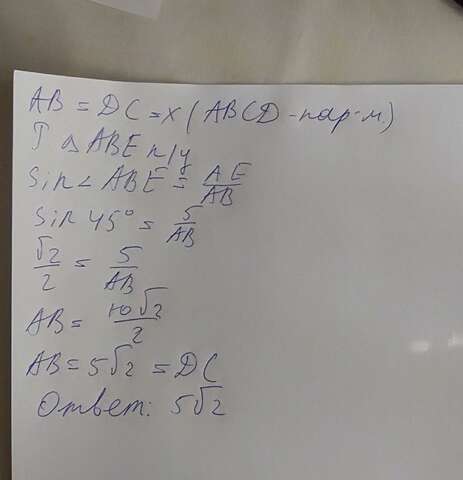 AB = DC = x (ABCD - пар-м.)
T △ ABE п/у
Sin ∠ ABE = AE/AB
Sin 45° = 5/AB
√2/2 = 5/AB
AB = 10√2/2
AB = 5√2 = DC
Ответ: 5√2